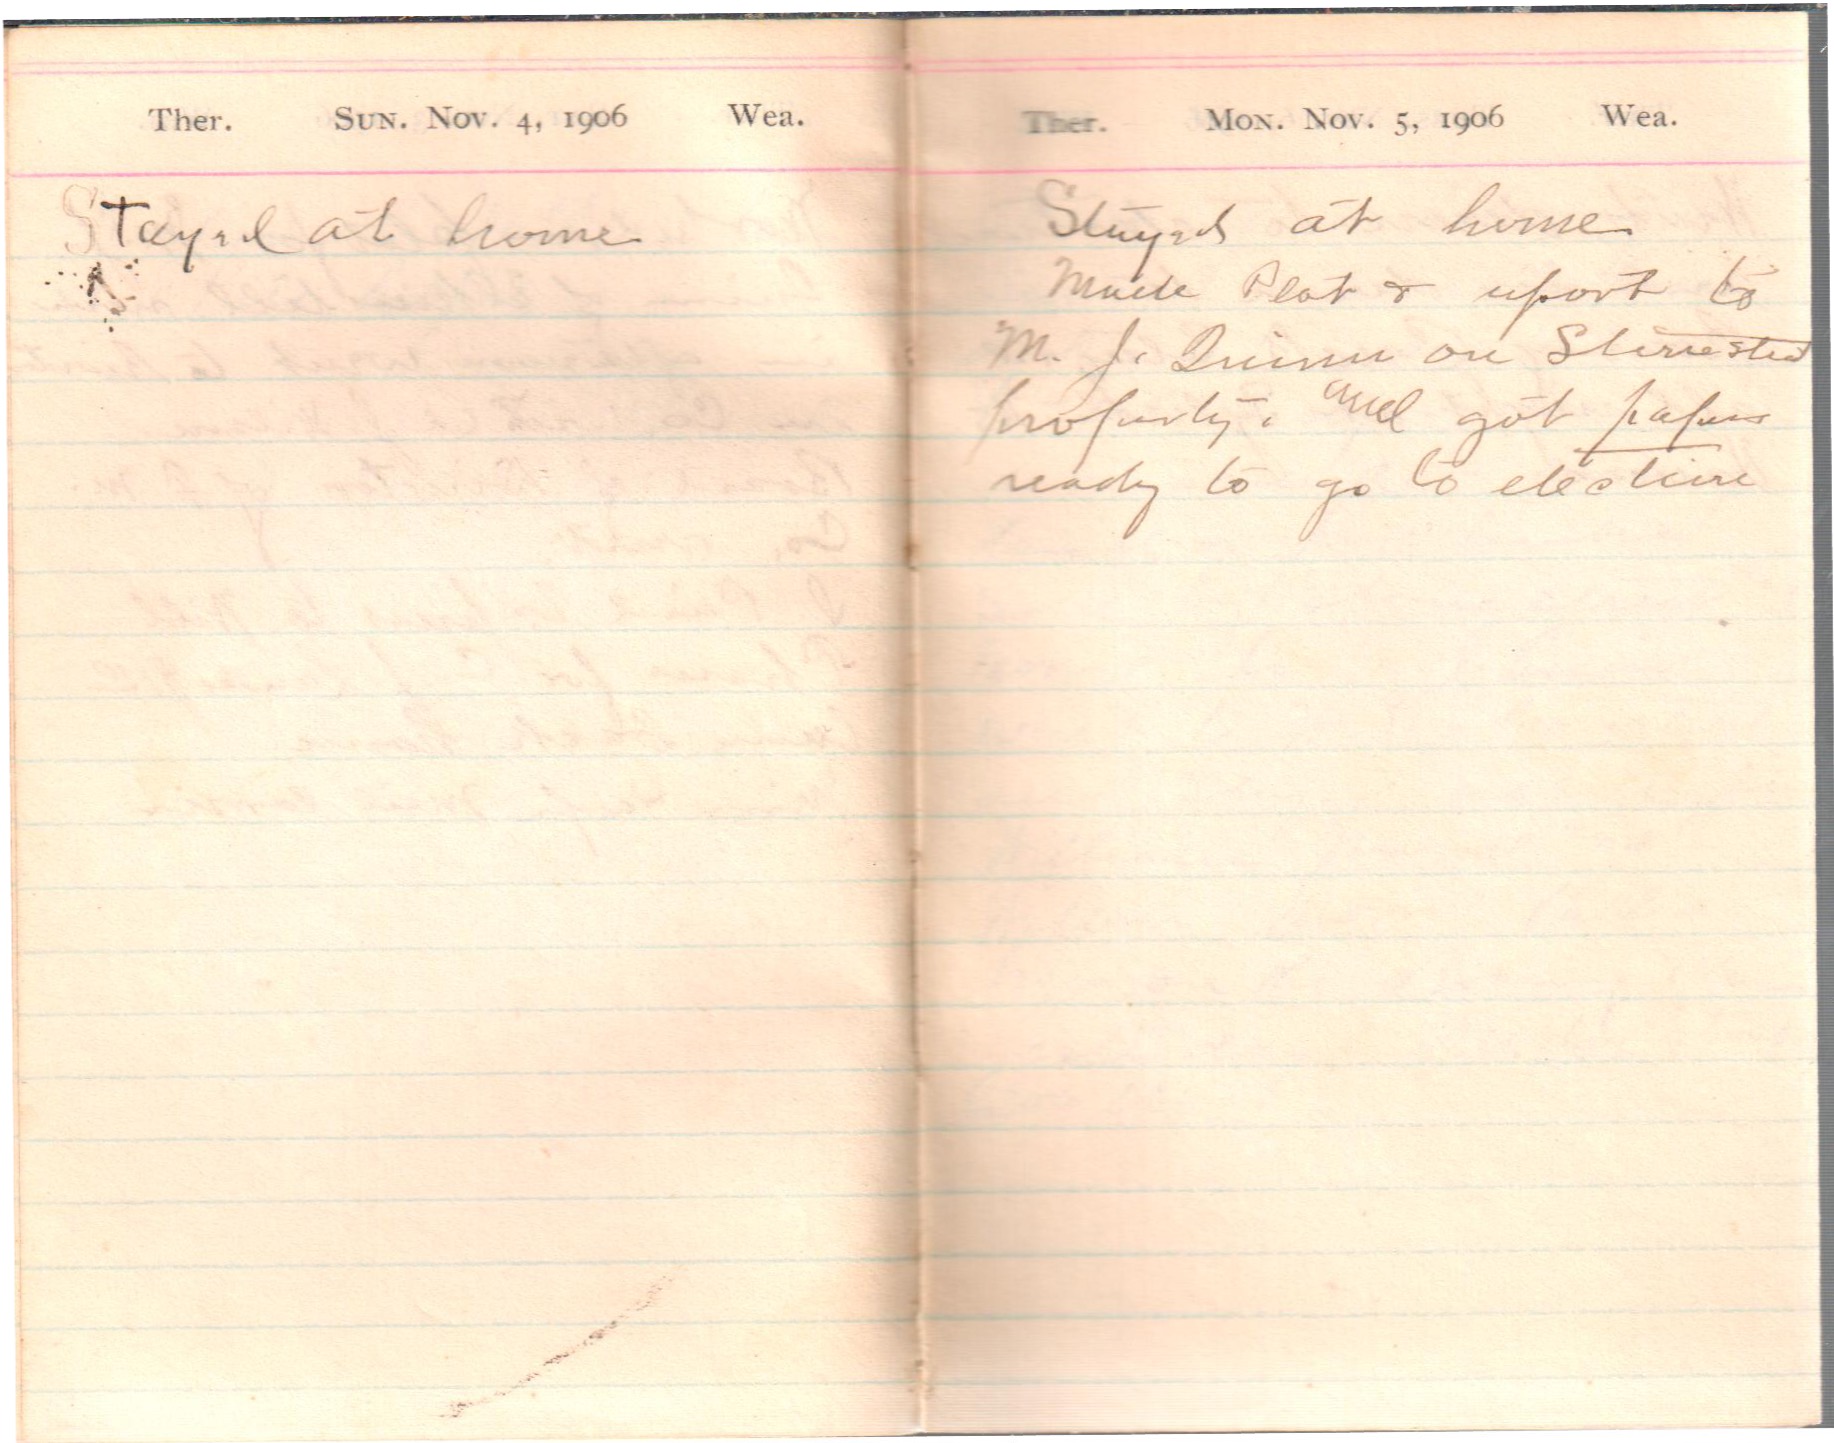 Ther. Sun. Nov. 4, 1906 Wea.
Stayed at home
Ther. Mon. Nov. 5, 1906 Wea.
Stayed at home
Made Plat & report to
M. J. Quinn on
property. and got papers
ready to go to election